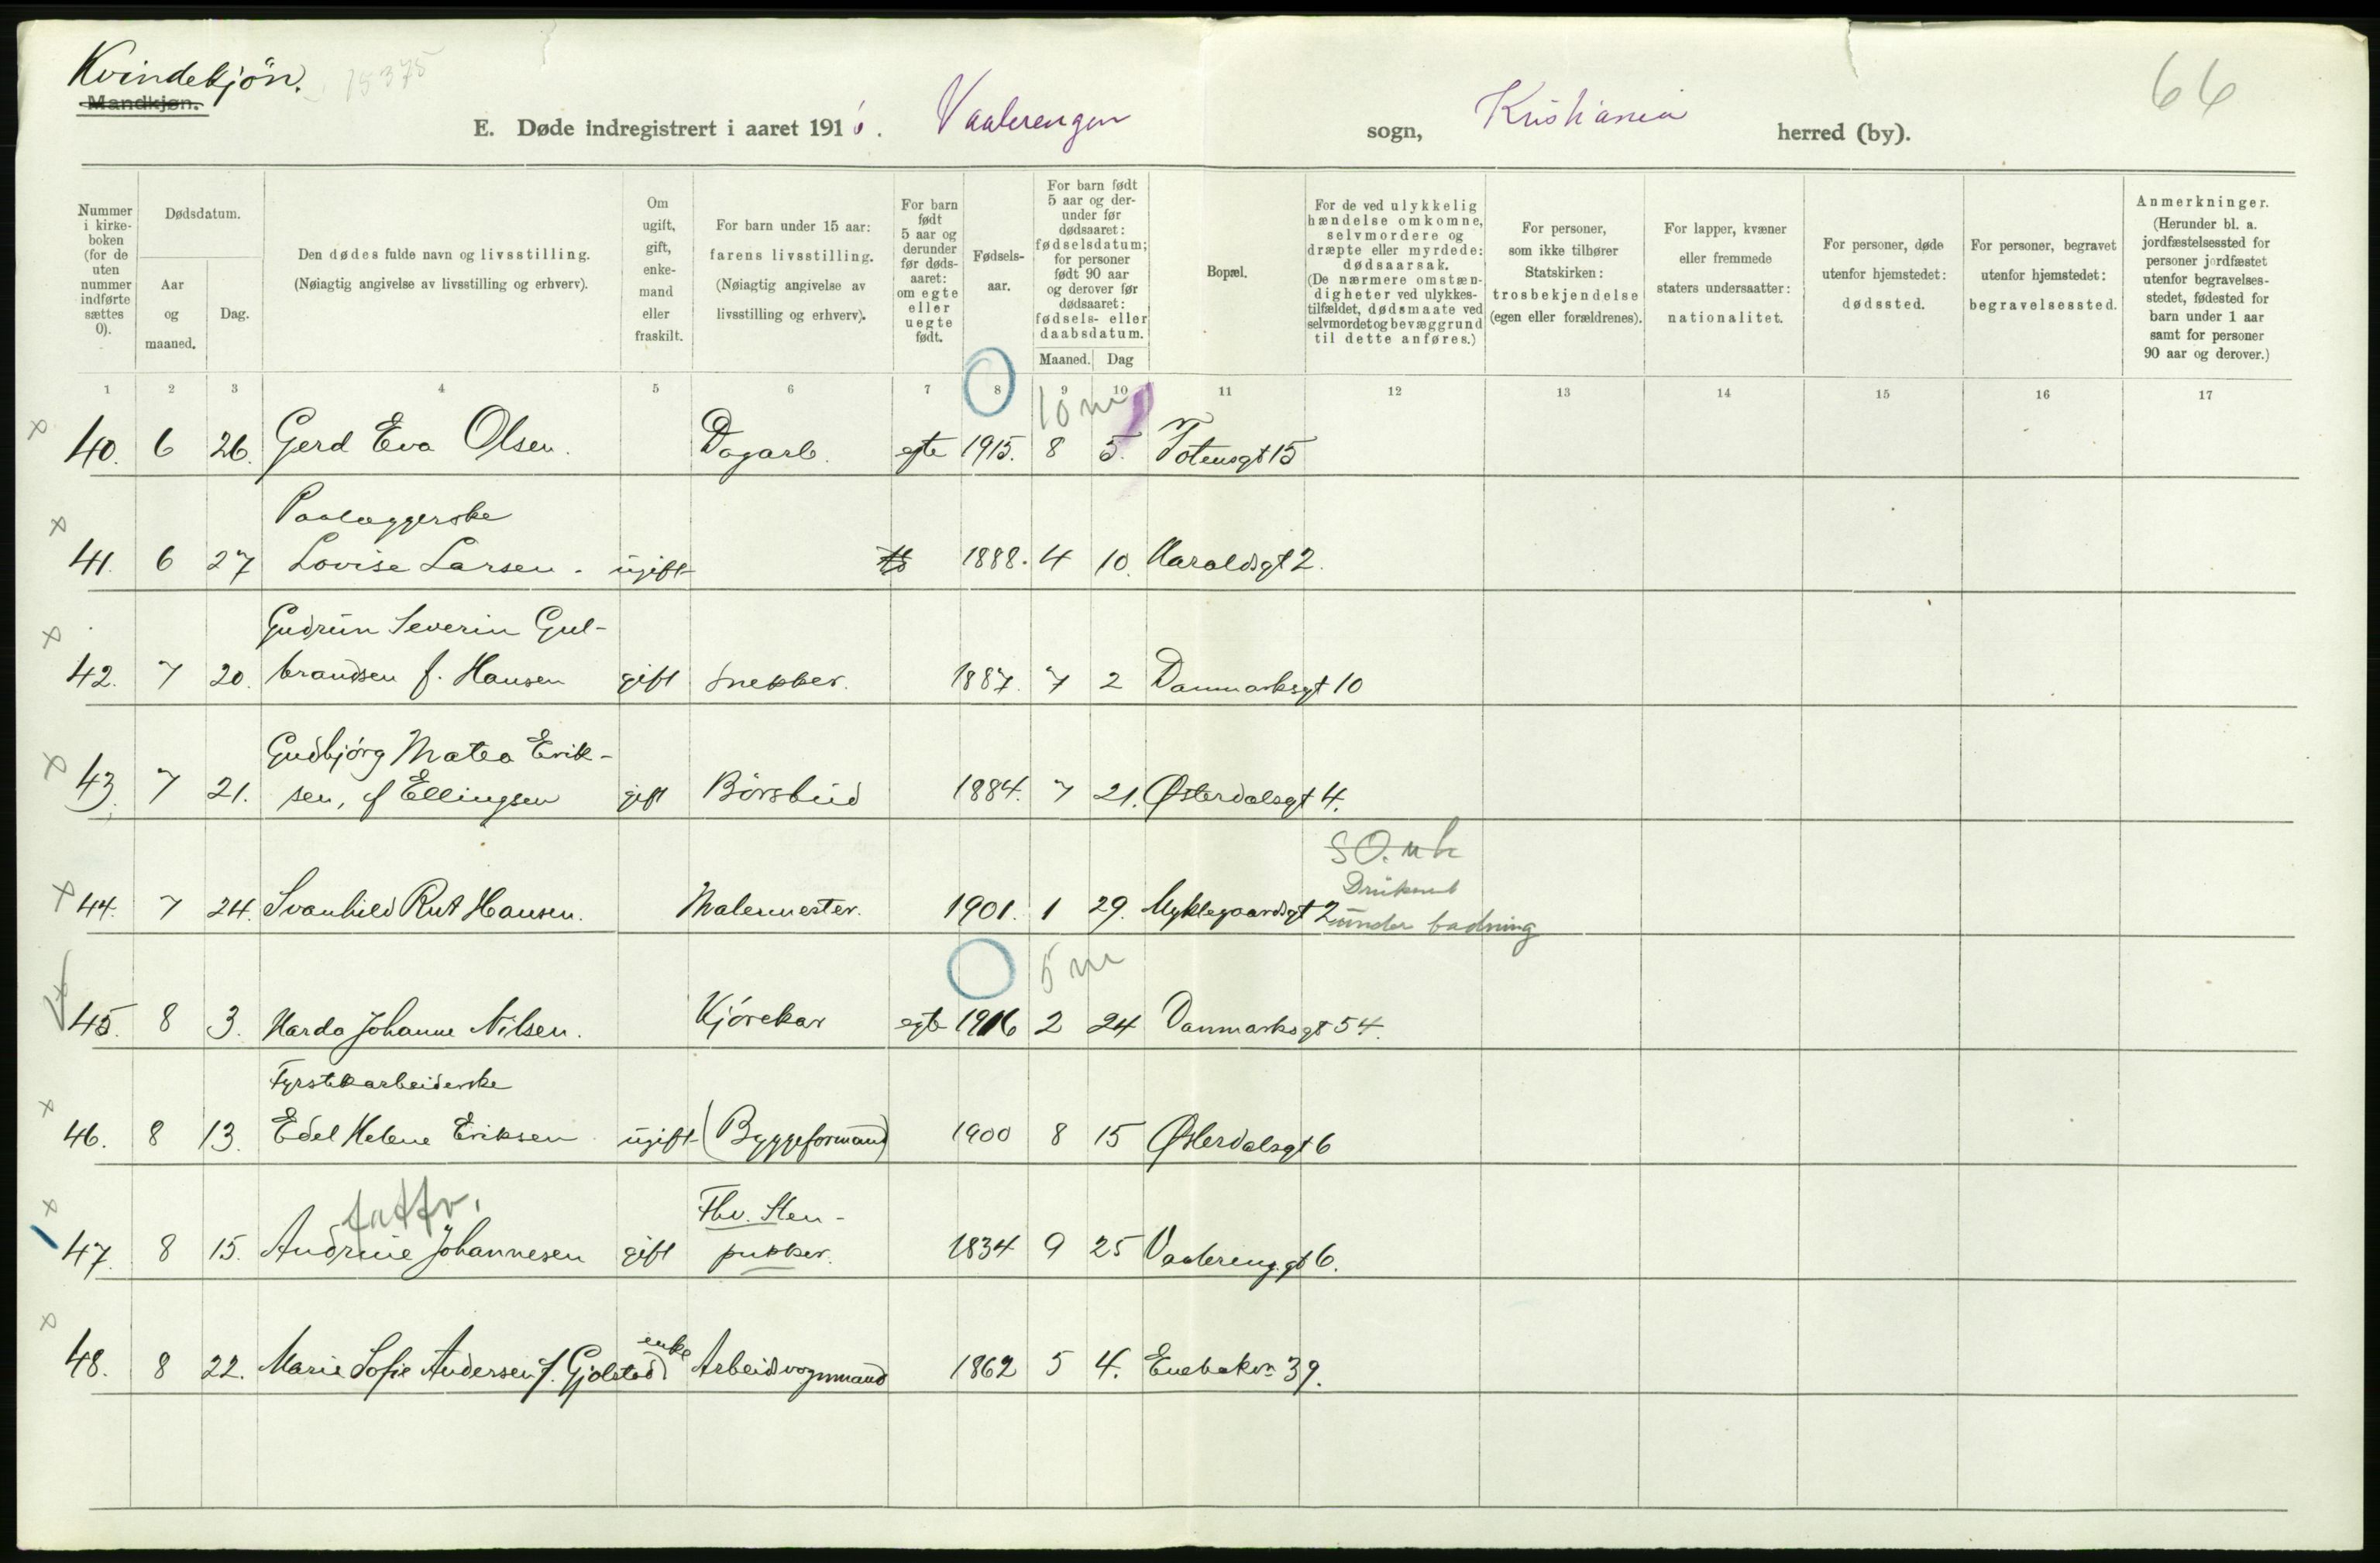 Kvindekjøn.
Mandkjøn.
15375
66
E. Døde indregistrert i aaret 1916. Vaalerengen sogn, Kristiania herred (by).
Nummer i kirkeboken (for de uten nummer indførte sættes 0).
Dødsdatum.
Aar og maaned.
Dag.
Den dødes fulde navn og livsstilling.
(Nøiagtig angivelse av livsstilling og erhverv).
Om ugift, gift, enkemand eller fraskilt.
For barn under 15 aar: farens livsstilling.
(Nøiagtig angivelse av livsstilling og erhverv).
For barn født 5 aar og derunder før dødsaaret: om egte eller uegte født.
Fødselsaar.
For barn født 5 aar og derunder før dødsaaret: fødselsdatum; for personer født 90 aar og derover før dødsaaret: fødsels- eller daabsdatum.
Maaned. Dag
Bopæl.
For de ved ulykkelig hændelse omkomne, selvmordere og dræpte eller myrdede: dødsaarsak.
(De nærmere omstændigheter ved ulykkestilfældet, dødsmaate ved selvmordet og bevæggrund til dette anføres.)
For personer, som ikke tilhører Statskirken: trosbekjendelse (egen eller forældrenes).
For lapper, kvæner eller fremmede staters undersaatter: nationalitet.
For personer, døde utenfor hjemstedet: dødssted.
For personer, begravet utenfor hjemstedet: begravelsessted.
Anmerkninger.
(Herunder bl. a. jordfæstelsessted for personer jordfæstet utenfor begravelsesstedet, fødested for barn under 1 aar samt for personer 90 aar og derover.)
1 2 3 4 5 6 7 8 9 10 11 12 13 14 15 16 17
10 m
40. 6 26. Gerd Eva Olsen. Dagarb. egte 1915. 8 5. Totensgt 15
Paalæggerske
41. 6 27 Lovise Larsen. ugift 1888. 4 10. Haraldsgt 2.
Gudrun Severin Gul-
42. 7 20. brandsen f. Hansen gift snekker. 1887. 7 2 Danmarksgt 10
Gudbjörg Matea Erik-
43. 7 21. sen, f Ellingsen gift Börsbud 1884. 7 21. Østerdalsgt 4.
Druknet
44. 7 24. Svanhild Rut Hansen. Malermester. 1901. 1 29. Myklegaardsgt 2 under badning
5 m
45. 8 3. Harda Johanne Nilsen. Kjörekar egte 1916 2 24 Danmarksgt 54.
Fyrstikarbeiderske
46. 8 13. Edel Helene Eriksen ugift (Byggeformand) 1900 8 15 Østerdalsgt 6
fattv.
Fhv. Sten-
47. 8 15. Andrine Johannesen gift pukker. 1834 9 25 Vaalereng.gt 6.
48. 8 22. Marie Sofie Andersen f. Gjølstad enke Arbeidsvognmand 1862 5 4. Enebakv. 39.